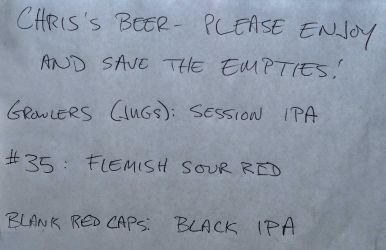 CHRIS'S BEER - PLEASE ENJOY
AND SAVE THE EMPTIES!
GROWLERS (JUGS): SESSION IPA
#35: FLEMISH SOUR RED
BLANK RED CAPS: BLACK IPA